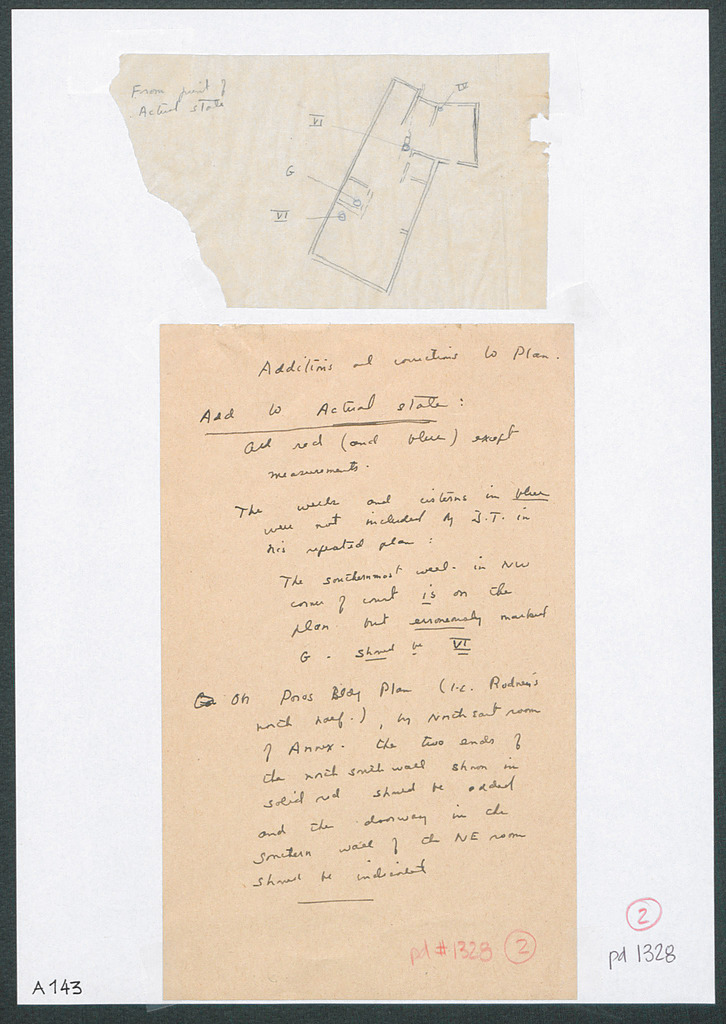 From print of
Actual State
IV
VI
G
VI
Additions and corrections to Plan.
Add to Actual state:
all red (and blue) except
measurements.
The wells and cisterns in blue
were not included by J.T. in
his repeated plan:
The southernmost well in NW
corner of court is on the
plan but erroneously marked
G - should be VI
On Poros Bldg Plan (i.e. Rodney's
north half.), in North east room
of Annex. the two ends of
the north south wall shown in
solid red should be added
and the doorway in the
southern wall of the NE room
should be indicated
pd #1328 2
2
pd 1328
A 143